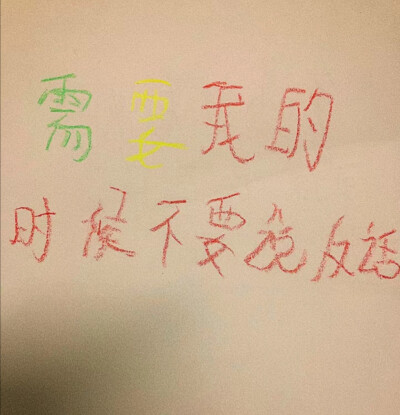 需要我的
时候不要说反话